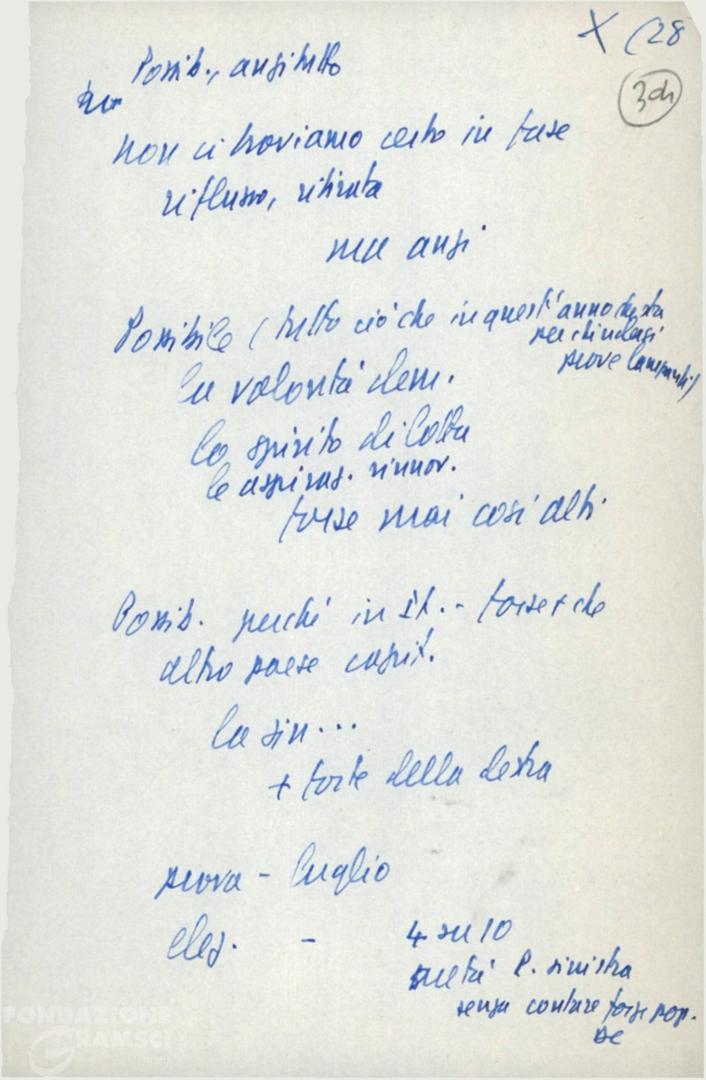 X (28
Possib., anzitutto
non ci troviamo certo in fase
riflusso, ritirata
ma anzi
Possibile (tutto ciò che in quest'anno
prove lampanti)
la volontà dem.
lo spirito di lotta
le aspiraz. rinnov.
forse mai così alti
Possib. perché in It. - forse + che
altro paese capit.
la sin...
+ forte della destra
prova - luglio
elez. - 4 su 10
metà P. sinistra
senza contare forze pop.
FONDAZIONE
GRAMSCI